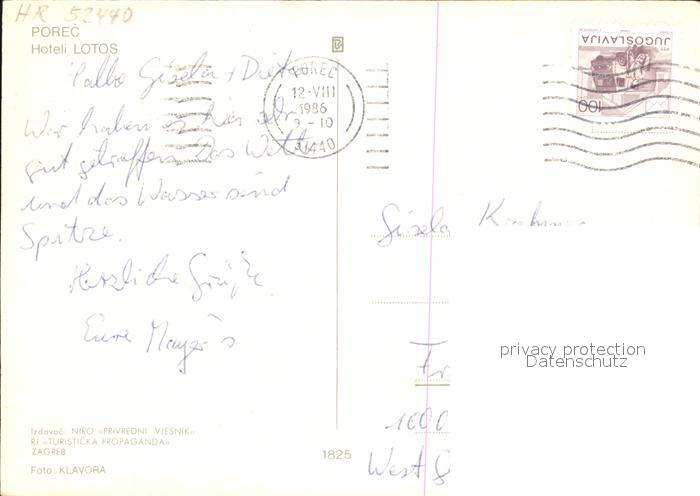 HR 52440
POREČ
Hoteli LOTOS
Hallo Gisela + Dieter
Wir haben es hier sehr
gut getroffen. Das Wetter
und das Wasser sind
Spitze.
Herzliche Grüße
Eure Mayer's
POREČ
12-VIII
1986
9-10
JUGOSLAVIJA
100
Gisela
1000
West
privacy protection
Datenschutz
Izdavač: NIRO »PRIVREDNI VJESNIK«
RJ »TURISTIČKA PROPAGANDA«
ZAGREB
Foto: KLAVORA
1825